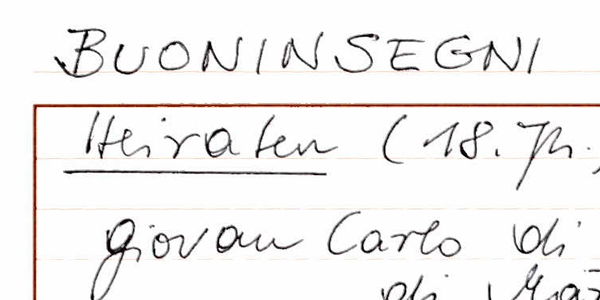 BUONINSEGNI
Heiraten (18. Jh.)
Giovan Carlo di
di